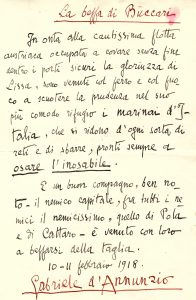 La beffa di Buccari
In onta alla cautissima flotta
austriaca occupata a covare senza fine
dentro i porti sicuri la gloriuzza di
Lissa, sono venuti col ferro e col fuo-
co a scuotere la prudenza nel suo
più comodo rifugio i marinai d'I-
talia, che si ridono d'ogni sorta di
reti e di sbarre, pronti sempre a
osare l'inosabile.
E un buon compagno, ben no-
to - il nemico capitale, fra tutti i ne-
mici il nemicissimo, quello di Pola
e di Cattaro - è venuto con loro
a beffarsi della taglia.
10-11 febbraio 1918.
Gabriele d'Annunzio